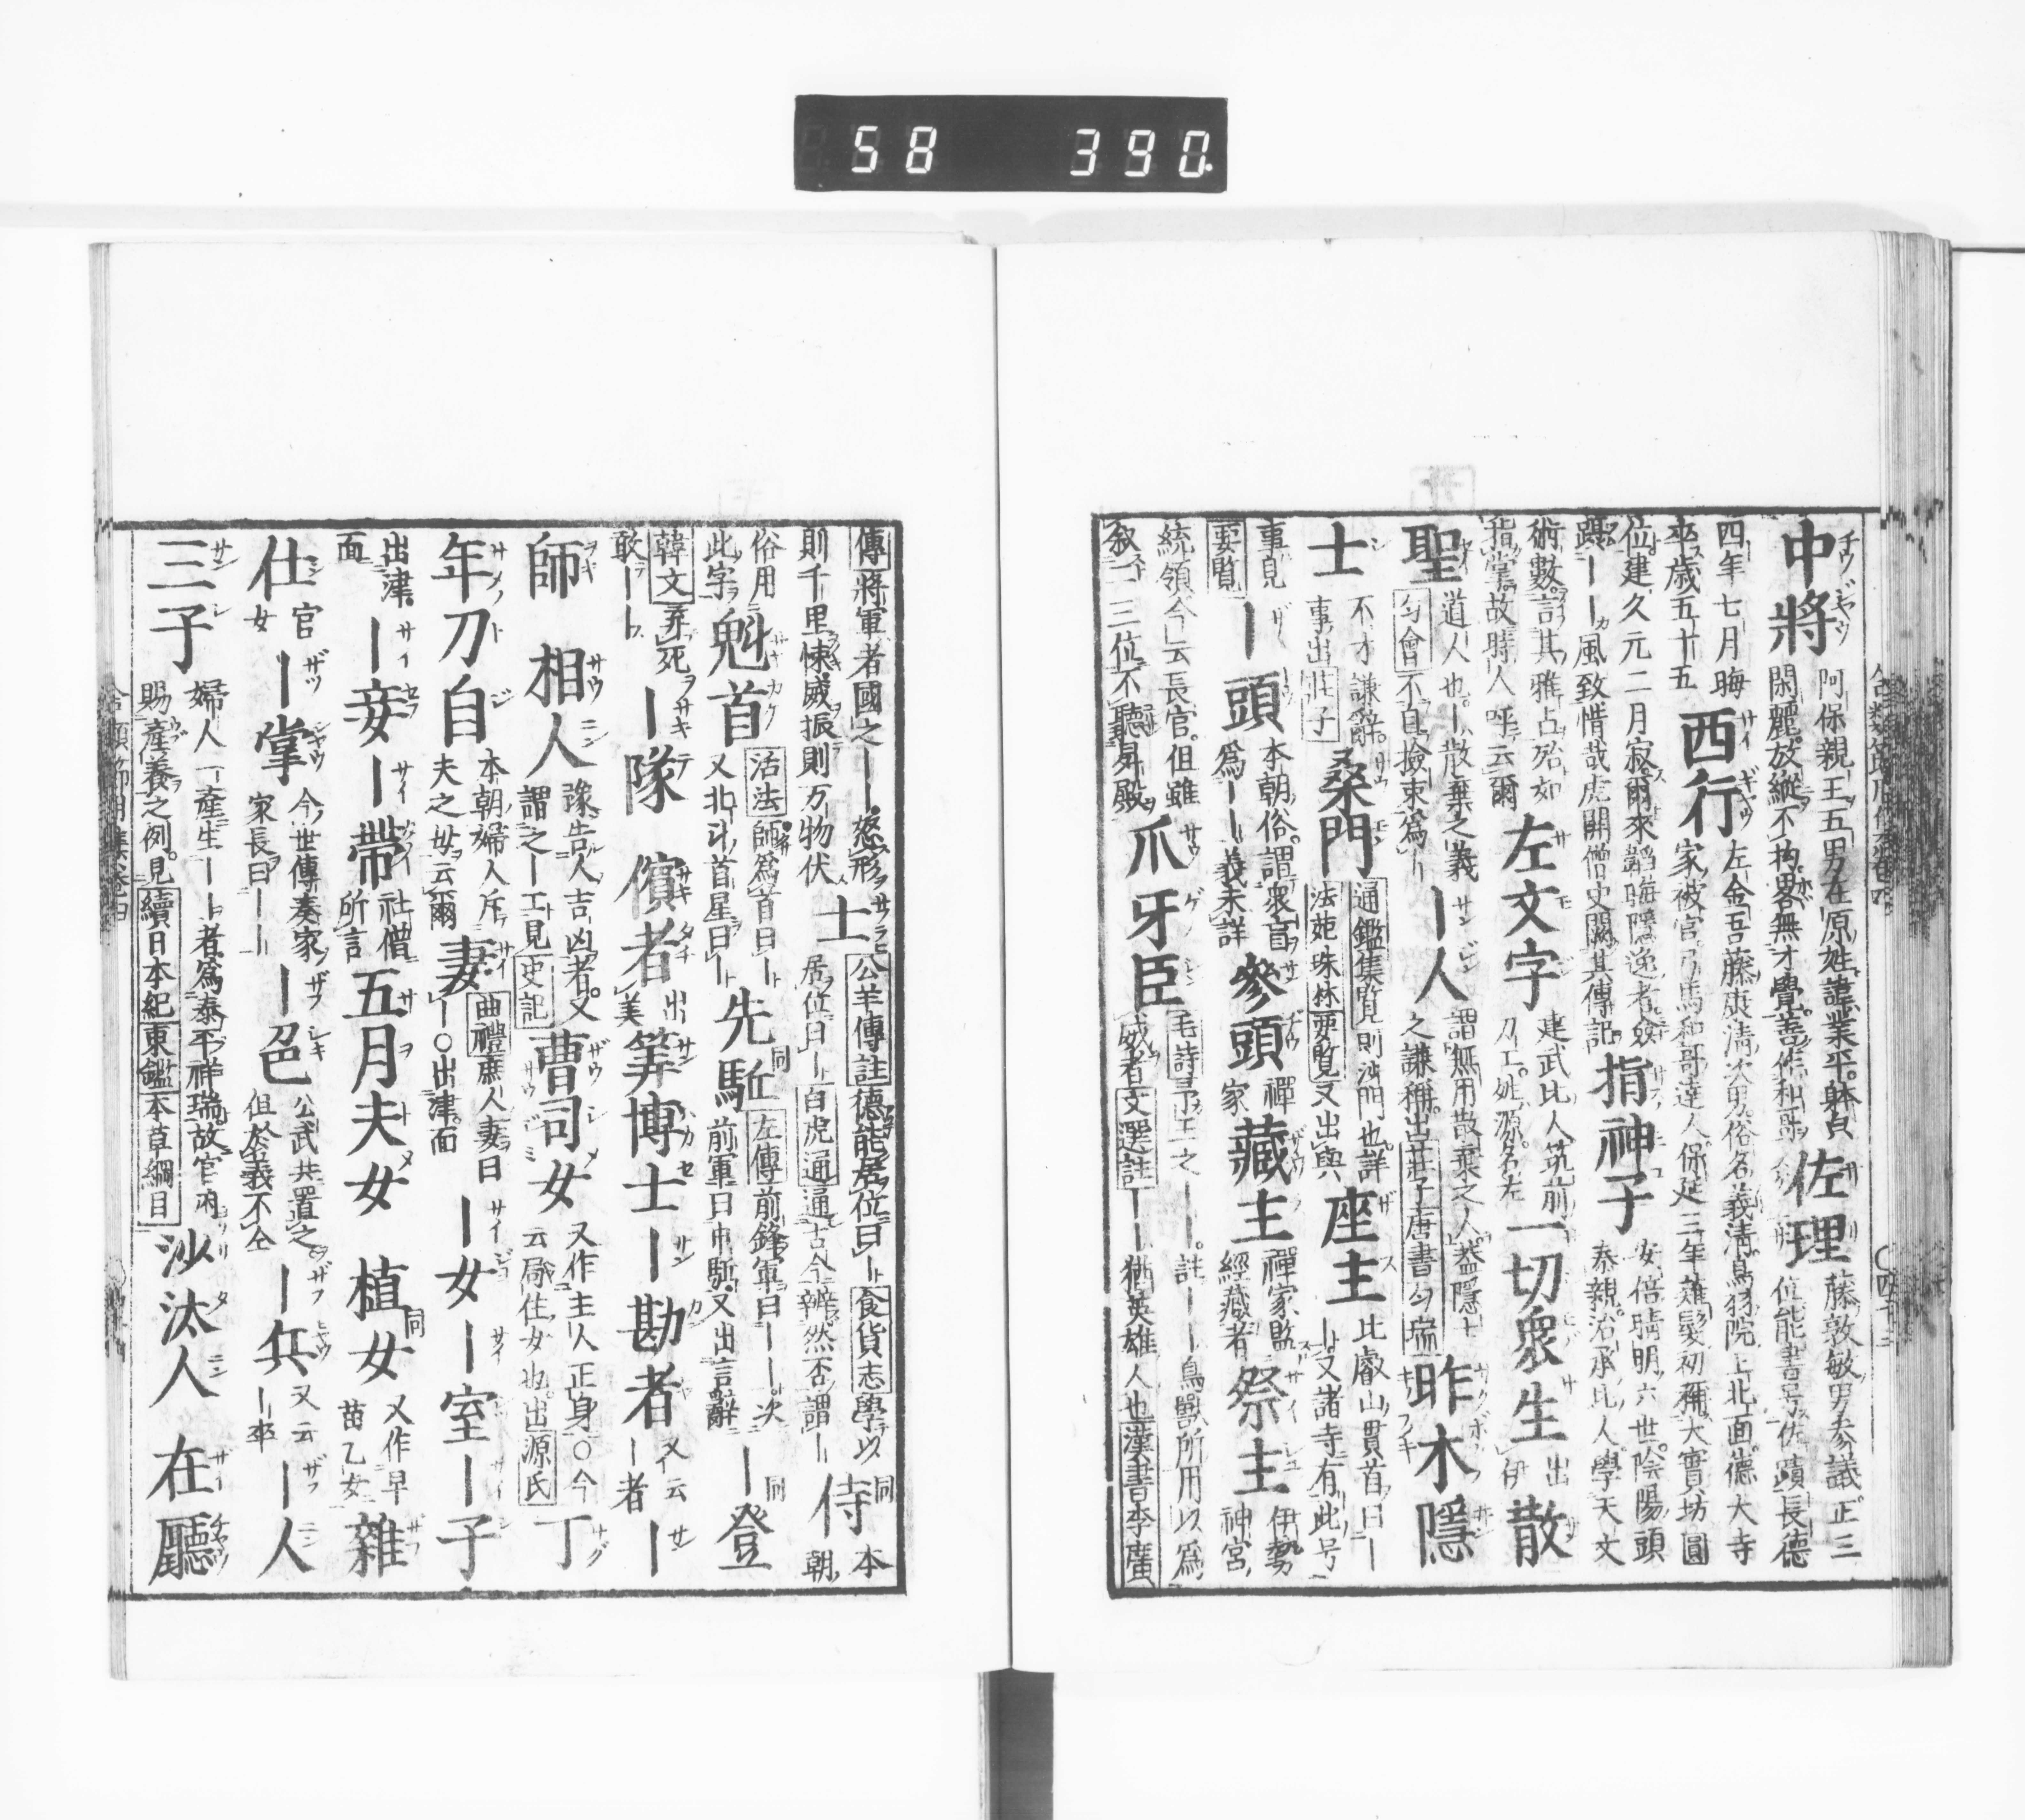 58 390
中將 阿保親王五男在原姓諱業平躰貞
閑麗放縱不拘畧無才學善作和哥
佐理 藤敦敏男參議正三
位能書号佐蹟長德
四年七月晦
卒歳五十五
西行 左金吾藤康淸次男俗名義淸鳥羽院上北面德大寺
家被官弓馬和哥達人保延三年薙髮初稱大寶坊圓
位建久元二月寂爾來韜晦隱逸者
蹟一一風致惜哉虎關僧史闕其傳記
指神子 安倍晴明六世陰陽頭
泰親治承比人學天文
術數言其雅占殆如
指掌故時人呼云爾
左文字 建武比人筑前
刀工姓源名左
一切衆生 出
伊
散
聖 道人也一散棄之義
匀會不自撿束爲一
一人 謂無用散棄之人
之謙稱出莊子唐書匀瑞
昨木隱
士 不才謙辭
事出莊子
桑門 通鑑集覽則沙門也詳
法苑珠林要覽又出與
座主 比叡山貫首曰一
一又諸寺有此号
事見
要覽
一頭 本朝俗謂衆盲
爲一一義未詳
參頭 禪
家
藏主 禪家監
經藏者
祭主 伊勢
神宮
統領今云長官但雖
叙二三位不聽昇殿
爪牙臣 毛詩予王之一一註一一鳥獸所用以爲
威者文選註一一猶英雄人也漢書李廣
傳將軍者國之一一怒形
則千里悚威振則万物伏
士 公羊傳註德能居位曰一食貨志學以
居位曰一白虎通通古今辨然否謂一
侍 本
朝
俗用
此字
魁首 活法師爲首曰一
又北斗首星曰一
先駈 左傳前鋒軍曰一一次
前軍曰中駈又出言辭
一登
韓文弃死
敢一一
一隊 儐者 出
美
筭博士 一勘者 又云
一者
一
師 相人 豫告人吉凶者又
謂之一工見史記
曹司女 又作主人正身○今
云局住女也出源氏
丁
年刀自 本朝婦人斥
夫之母云爾
妻 曲禮庶人妻曰
一○出津面
一女 一室 一子
出津
面
一妾 一帶 社僧
所言
五月夫女 植女 又作早
苗乙女
雜
仕 官
女
一掌 今世傳奏家
家長曰一一
一色 公武共置之
但於義不仝
一兵 又云
一卒
一人
三子 婦人一產生一一者爲泰平祥瑞故官府
賜產養之例見續日本紀東鑑本草綱目
沙汰人 在廳